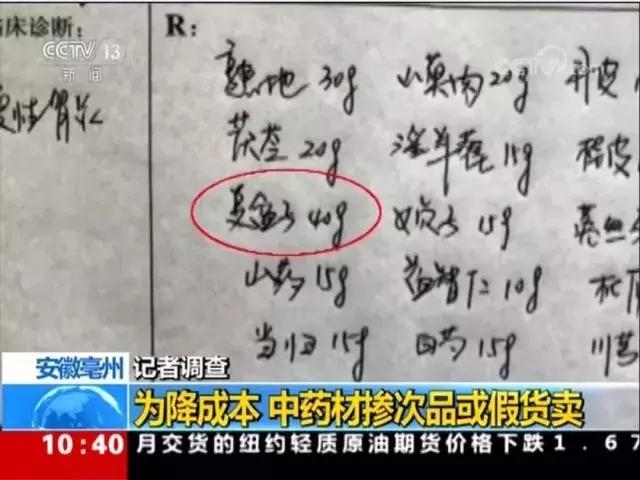 临床诊断: R:
CCTV 13
新闻
熟地 30g 山萸肉 20g 丹皮
变性 骨
茯苓 20g 淫羊藿 15g 陈皮
40g 女贞子 15g
山药 15g 益智仁 10g
当归 15g 白药 15g 川
安徽亳州 记者调查
为降成本 中药材掺次品或假货卖
10:40 月交货的纽约轻质原油期货价格下跌1.67